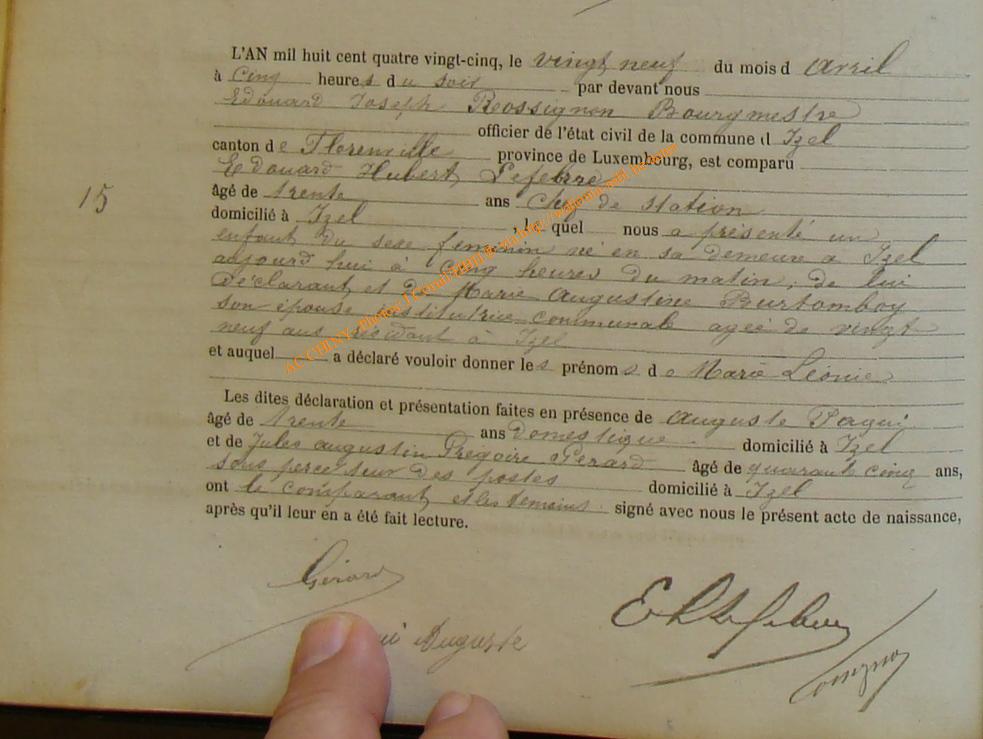 L'AN mil huit cent quatre vingt-cinq, le vingt neuf du mois d avril
à Cinq heures du soir par devant nous
Edouard Joseph Rossignon Bourgmestre
officier de l'état civil de la commune d Izel
canton de Florenville province de Luxembourg, est comparu
Edouard Hubert Lefebvre
15
âgé de trente ans Chef de station
domicilié à Izel, l quel nous a présenté un
enfant du sexe feminin né en sa demeure à Izel
aujourd'hui à cinq heures du matin, de lui
Déclarant et de Marie Augustine Burtomboy
son épouse institutrice communale agée de vingt
neuf ans résidant à Izel
et auquel a déclaré vouloir donner les prénoms de Marie Léonie
Les dites déclaration et présentation faites en présence de Auguste
âgé de trente ans Domestique domicilié à Izel
et de Jules augustin Grégoire Gérard âgé de quarante cinq ans,
sous percepteur des postes domicilié à Izel
ont le comparant et les témoins signé avec nous le présent acte de naissance,
après qu'il leur en a été fait lecture.
Gérard
Auguste
E h Lefebvre
AC CHINY - Photos J